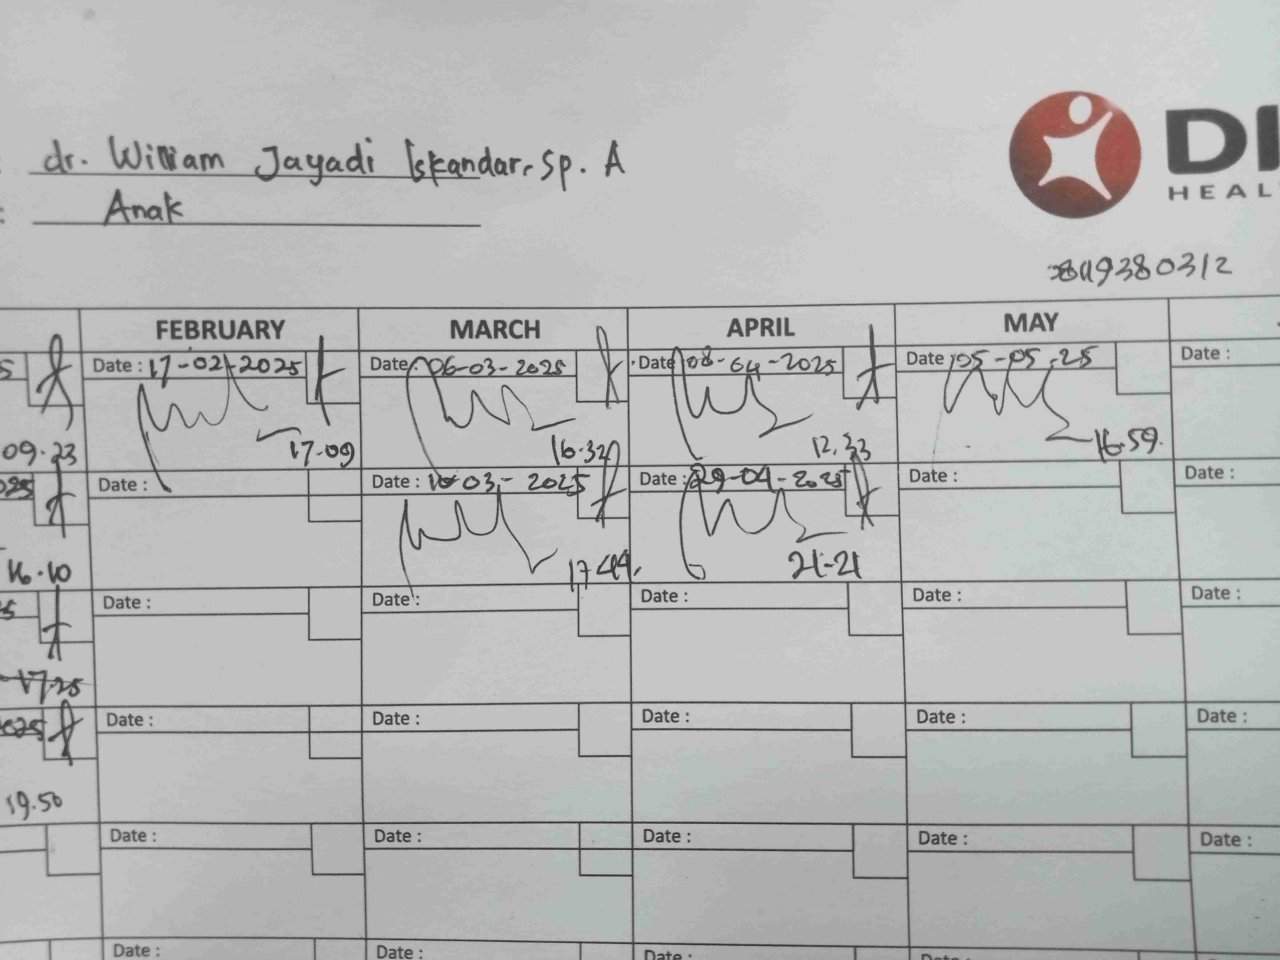 : dr. William Jayadi Iskandar, Sp. A
: Anak
DI
HEAL
FEBRUARY MARCH APRIL MAY
5 Date : 17-02-2025 Date : 06-03-2025 Date : 08-04-2025 Date : 05-05-25 Date :
09.23 17.09 16.32 12.33 16.59.
025 Date : Date : 10-03-2025 Date : 29-04-2025 Date : Date :
16.10 17.44. 21-21
5 Date : Date : Date : Date : Date :
17.25
2025 Date : Date : Date : Date : Date :
19.50
Date : Date : Date : Date : Date :
Date : Date : Date : Date :